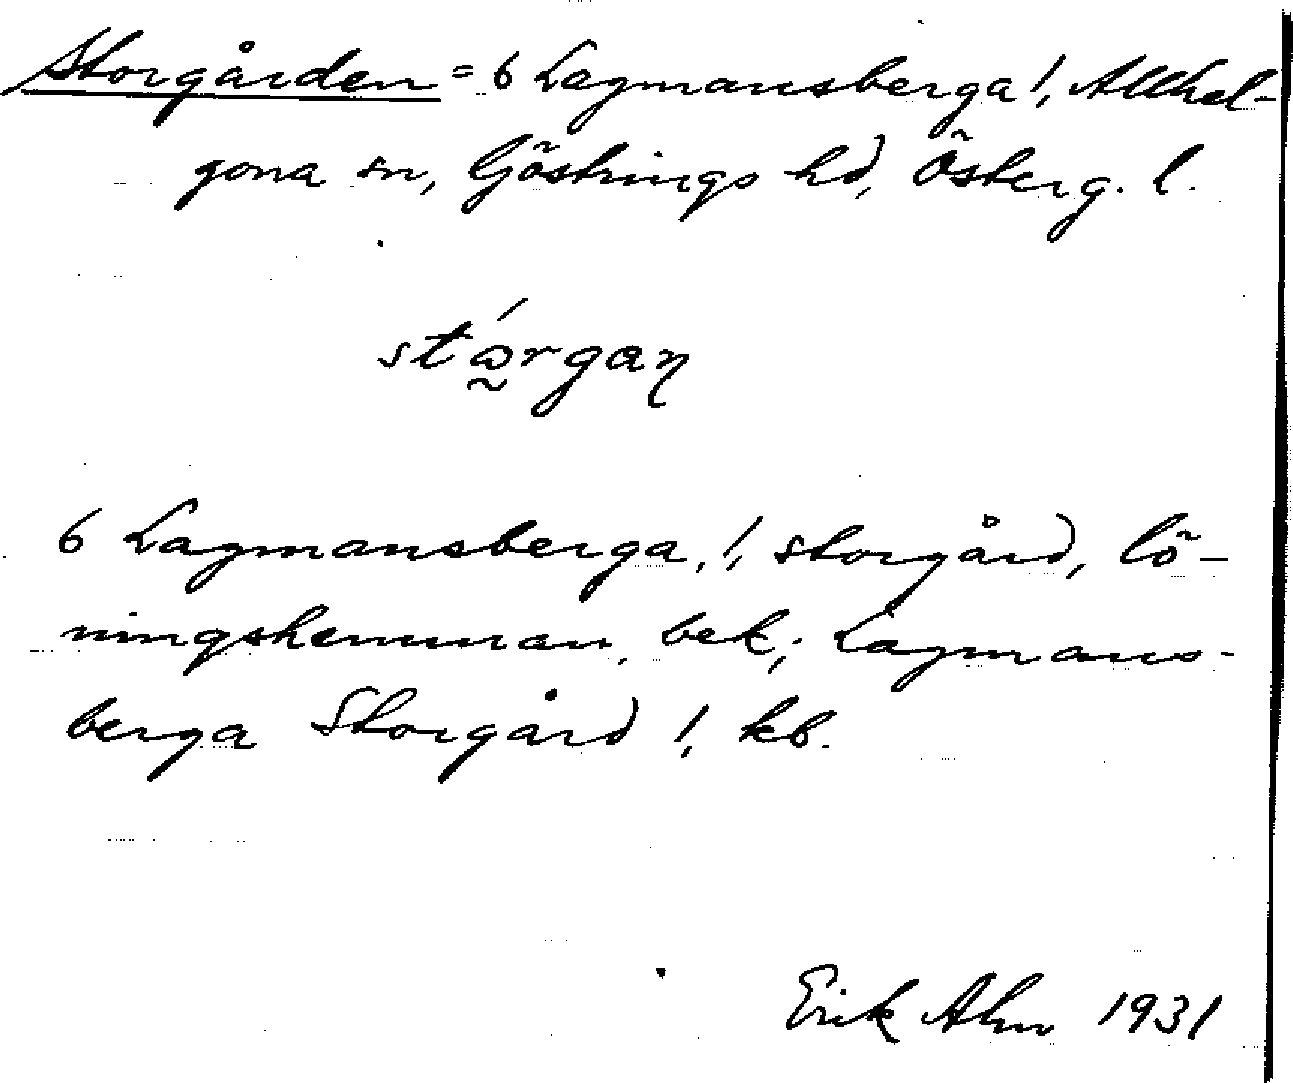 Storgården = 6 Lagmansberga !, Allhel-
gona sn, Göstrings hd, Österg. l.
stǻ̰rgaɳ
6 Lagmansberga, !, storgård, lö-
ningshemman, bek.; Lagmans-
berga Storgård !, kb.
Erik Ahm 1931